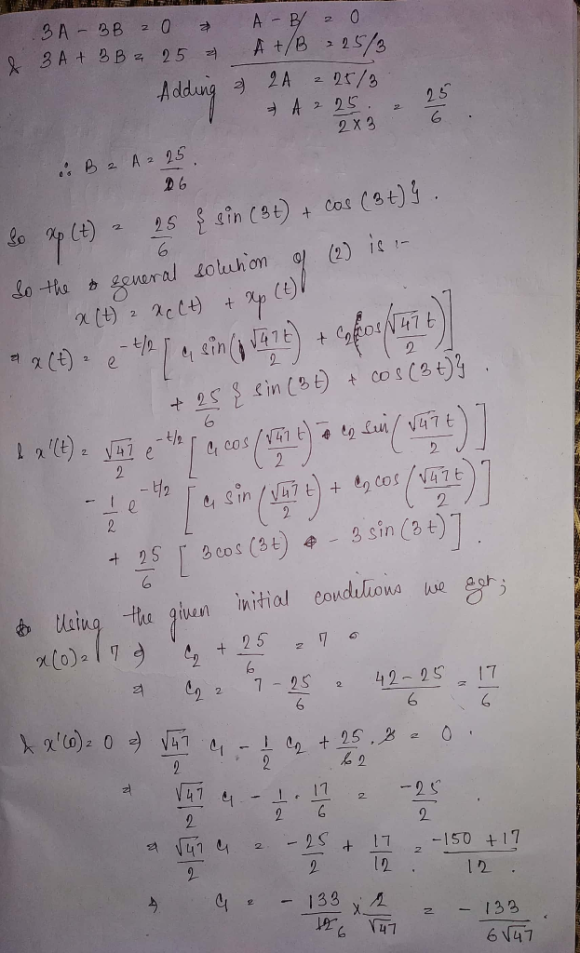 3A - 3B = 0 ⇒ A - B = 0
& 3A + 3B = 25 ⇒ A + B = 25/3
Adding ⇒ 2A = 25/3
⇒ A = 25/(2×3) = 25/6.
∴ B = A = 25/6.
So xp(t) = 25/6 { sin(3t) + cos(3t) }.
So the general solution of (2) is :-
x(t) = xc(t) + xp(t)
⇒ x(t) = e^(-t/2) [ c₁ sin(√47 t/2) + c₂ cos(√47 t/2) ]
+ 25/6 { sin(3t) + cos(3t) }.
& x'(t) = √47/2 e^(-t/2) [ c₁ cos(√47 t/2) - c₂ sin(√47 t/2) ]
- 1/2 e^(-t/2) [ c₁ sin(√47 t/2) + c₂ cos(√47 t/2) ]
+ 25/6 [ 3cos(3t) - 3 sin(3t) ].
Using the given initial conditions we get;
x(0) = 7 ⇒ c₂ + 25/6 = 7
⇒ c₂ = 7 - 25/6 = (42 - 25)/6 = 17/6
& x'(0) = 0 ⇒ √47/2 c₁ - 1/2 c₂ + 25/6 2 . 3 = 0.
⇒ √47/2 c₁ - 1/2 . 17/6 = -25/2.
⇒ √47/2 c₁ = -25/2 + 17/12 = (-150 + 17)/12.
⇒ c₁ = - 133/12 6 × 2/√47 = - 133/(6√47).